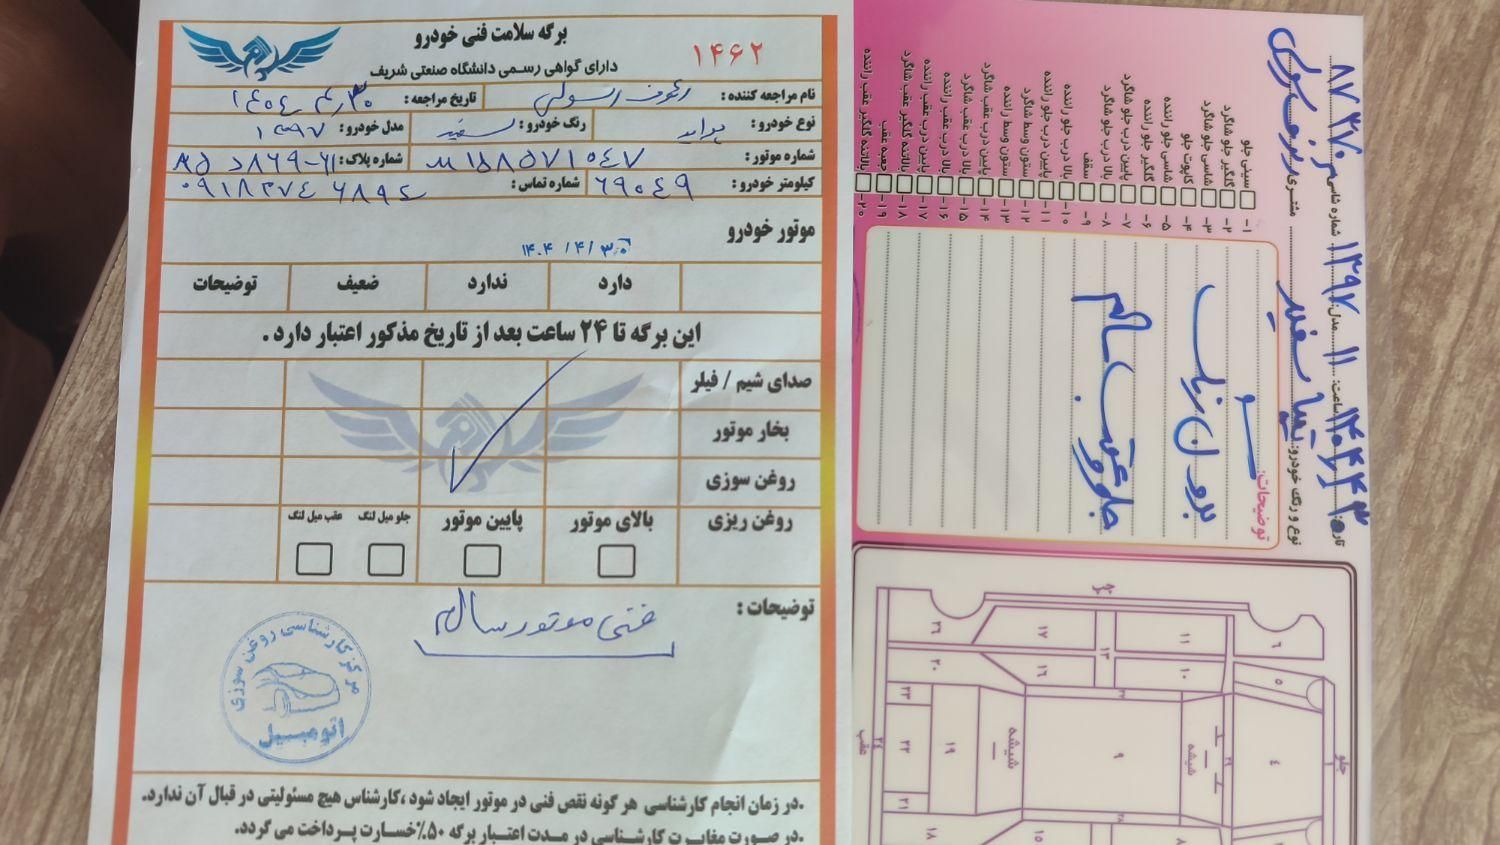 برگه سلامت فنی خودرو
۱۴۶۲
دارای گواهی رسمی دانشگاه صنعتی شریف
نام مراجعه کننده : رئوف رسولی تاریخ مراجعه : ۱۴۰۴/۴/۳۰
نوع خودرو : پراید رنگ خودرو : سفید مدل خودرو : ۱۳۹۷
شماره موتور : شماره پلاک :
کیلومتر خودرو : ۶۹۰۴۹ شماره تماس :
موتور خودرو
۱۴۰۴/۴/۳۰
دارد ندارد ضعیف توضیحات
این برگه تا ۲۴ ساعت بعد از تاریخ مذکور اعتبار دارد .
صدای شیم / فیلر
بخار موتور
روغن سوزی
روغن ریزی بالای موتور پایین موتور جلو میل لنگ عقب میل لنگ
توضیحات :
فنی موتور سالم
مرکز کارشناسی روغن سوزی
اتومبیل
.در زمان انجام کارشناسی هر گونه نقص فنی در موتور ایجاد شود ،کارشناس هیچ مسئولیتی در قبال آن ندارد.
.در صورت مغایرت کارشناسی در مدت اعتبار برگه ۵۰٪خسارت پرداخت می گردد.
شماره شاسی: مدل: ۱۳۹۷ ساعت: ۱۱
مشتری: نوع و رنگ خودرو:
۱- سینی جلو
۲- گلگیر جلو شاگرد
۳- شاسی جلو شاگرد
۴- کاپوت جلو
۵- شاسی جلو راننده
۶- گلگیر جلو راننده
۷- پایین درب جلو شاگرد
۸- بالا درب جلو شاگرد
۹- سقف
۱۰- بالا درب جلو راننده
۱۱- پایین درب جلو راننده
۱۲- ستون وسط شاگرد
۱۳- ستون وسط راننده
۱۴- پایین درب عقب شاگرد
۱۵- بالا درب عقب شاگرد
۱۶- بالا درب عقب راننده
۱۷- پایین درب عقب راننده
۱۸- بالاتنه گلگیر عقب شاگرد
۱۹- جعبه عقب
۲۰- بالاتنه گلگیر عقب راننده
توضیحات:
بدون رنگ
جلو و عقب سالم
جلو
عقب
شیشه
شیشه
۶
۱۱
۱۷
۲۶
۱۳
۵
۱۰
۱۶
۲۰
۴
۹
۱۹
۲۳
۲۲
۲۱
۱۵
۱۸